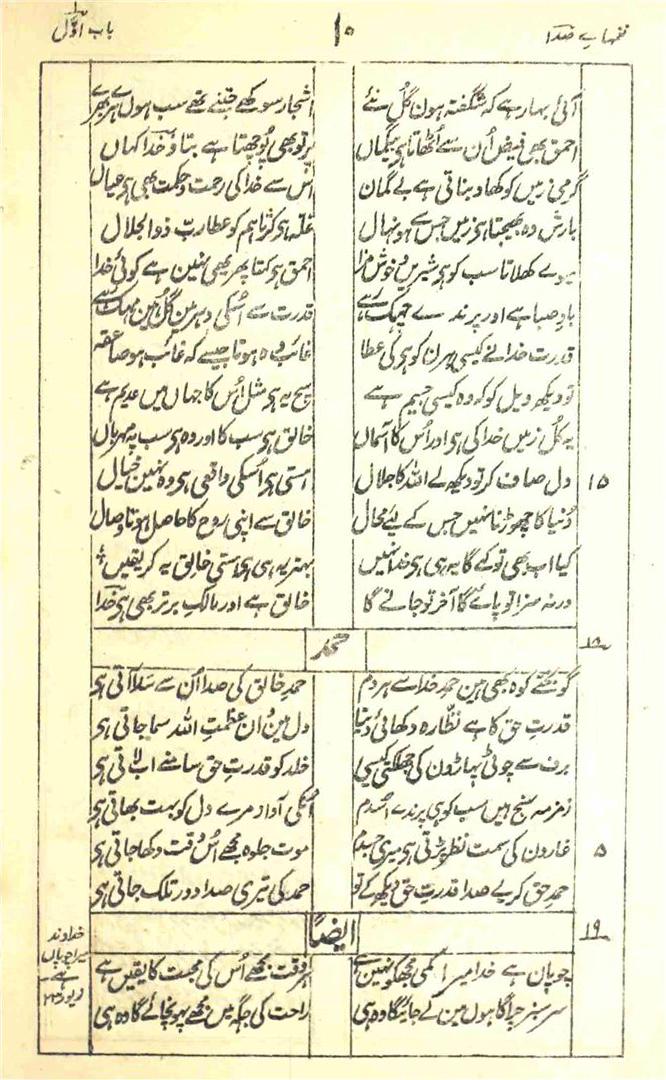 نغمہائے صدا ۱۰ باب اوّل
آئی بہار ہے کہ شگفتہ ہون گُل نئے اشجار سوکھے جتنے تھے سب ہوں ہرے بھرے
احمق بھی فیض اُن سے اُٹھاتا ہی بیگماں پر تو بھی پُوچھتا ہے بتاؤ خدا کہاں
گرمی زمیں کو کھاد بناتی ہے بے گمان اُس سے خدا کی رحمت و حکمت بھی ہو عیاں
بارش وہ بھیجتا ہی زمیں جس سے ہو نہال غلّہ ہی کرتا ہم کو عطا ربّ ذوالجلال
میوے کھلاتا سب کو ہی شیریں و خوش مزا احمق ہی کہتا پھر بھی نہین ہے کوئی خدا
بادِ صبا ہے اور پرندے چہک رہے قدرت سے اُسکی دہر مین گُل ہین مہک رہے
قدرت خدا نے کیسی ہرن کو ہی کی عطا غائب وہ ہوتا جیسے کہ غائب ہو صاعقہ
تو دیکھ ویل کو کہ وہ کیسی جسیم ہے سچ یہ ہی مثل اُس کا جہاں میں عدیم ہے
یہ کُل زمیں خدا کی ہی اور اُس کا آسماں خالق ہی سب کا اور وہ ہی سب پہ مہرباں
۱۵ دل صاف کر تو دیکھ لے اللہ کا جلال ہستی ہی اُسکی واقعی ہی وہ نہین خیال
دُنیا کا چھوڑنا نہیں جس کے لیٔے محال خالق سے اپنی روح کا حاصل ہو تا وصال
کیا اب بھی تو کہے گا یہ ہی ہی خدا نہیں بہتر یہ ہی ہی ہستی خالق پہ کر یقیں
ورنہ سزا تو پائے گا آخر تو جانے گا خالق ہے اور مالک برتر بھی ہی خدا
۱۸ حمد
گونجتے کوہ بھی ہین حمدِ خدا سے ہر دم حمدِ خالق کی صدا اُن سے سَدا آتی ہی
قدرتِ حق کا ہے نظّارہ دکھائی دیتا دل مین ان عظمتِ اللہ سما جاتی ہی
برف سے چوٹی پہاڑون کی جھلکتی کیسی خلد کو قدرتِ حق سامنے اب لاتی ہی
زمزمہ سنج ہیں سب کوہی پرندے اُسدم اُنکی آواز مرے دل کو بہت بھاتی ہی
۵ غارون کی سمت نظر پڑتی ہی میری جسدم موت جلوہ مجھے اُس وقت دکھا جاتی ہی
حمدِ حق کر لے صدا قدرتِ حق دیکھ کے تو حمد کی تیری صدا دور تلک جاتی ہی
۱۹ ایضاً
چوپان ہے خدا میرا کمی مجھکو نہین ہے ہر وقت مجھے اُس کی محبت کا یقیں ہے
سرسبز چراگاہوں مین لے جائیگا وہ ہی راحت کی جگہ میں مجھے پہونچائے گا وہ ہی
خداوند
میرا چوپاں
ہے
زبور ۲۳